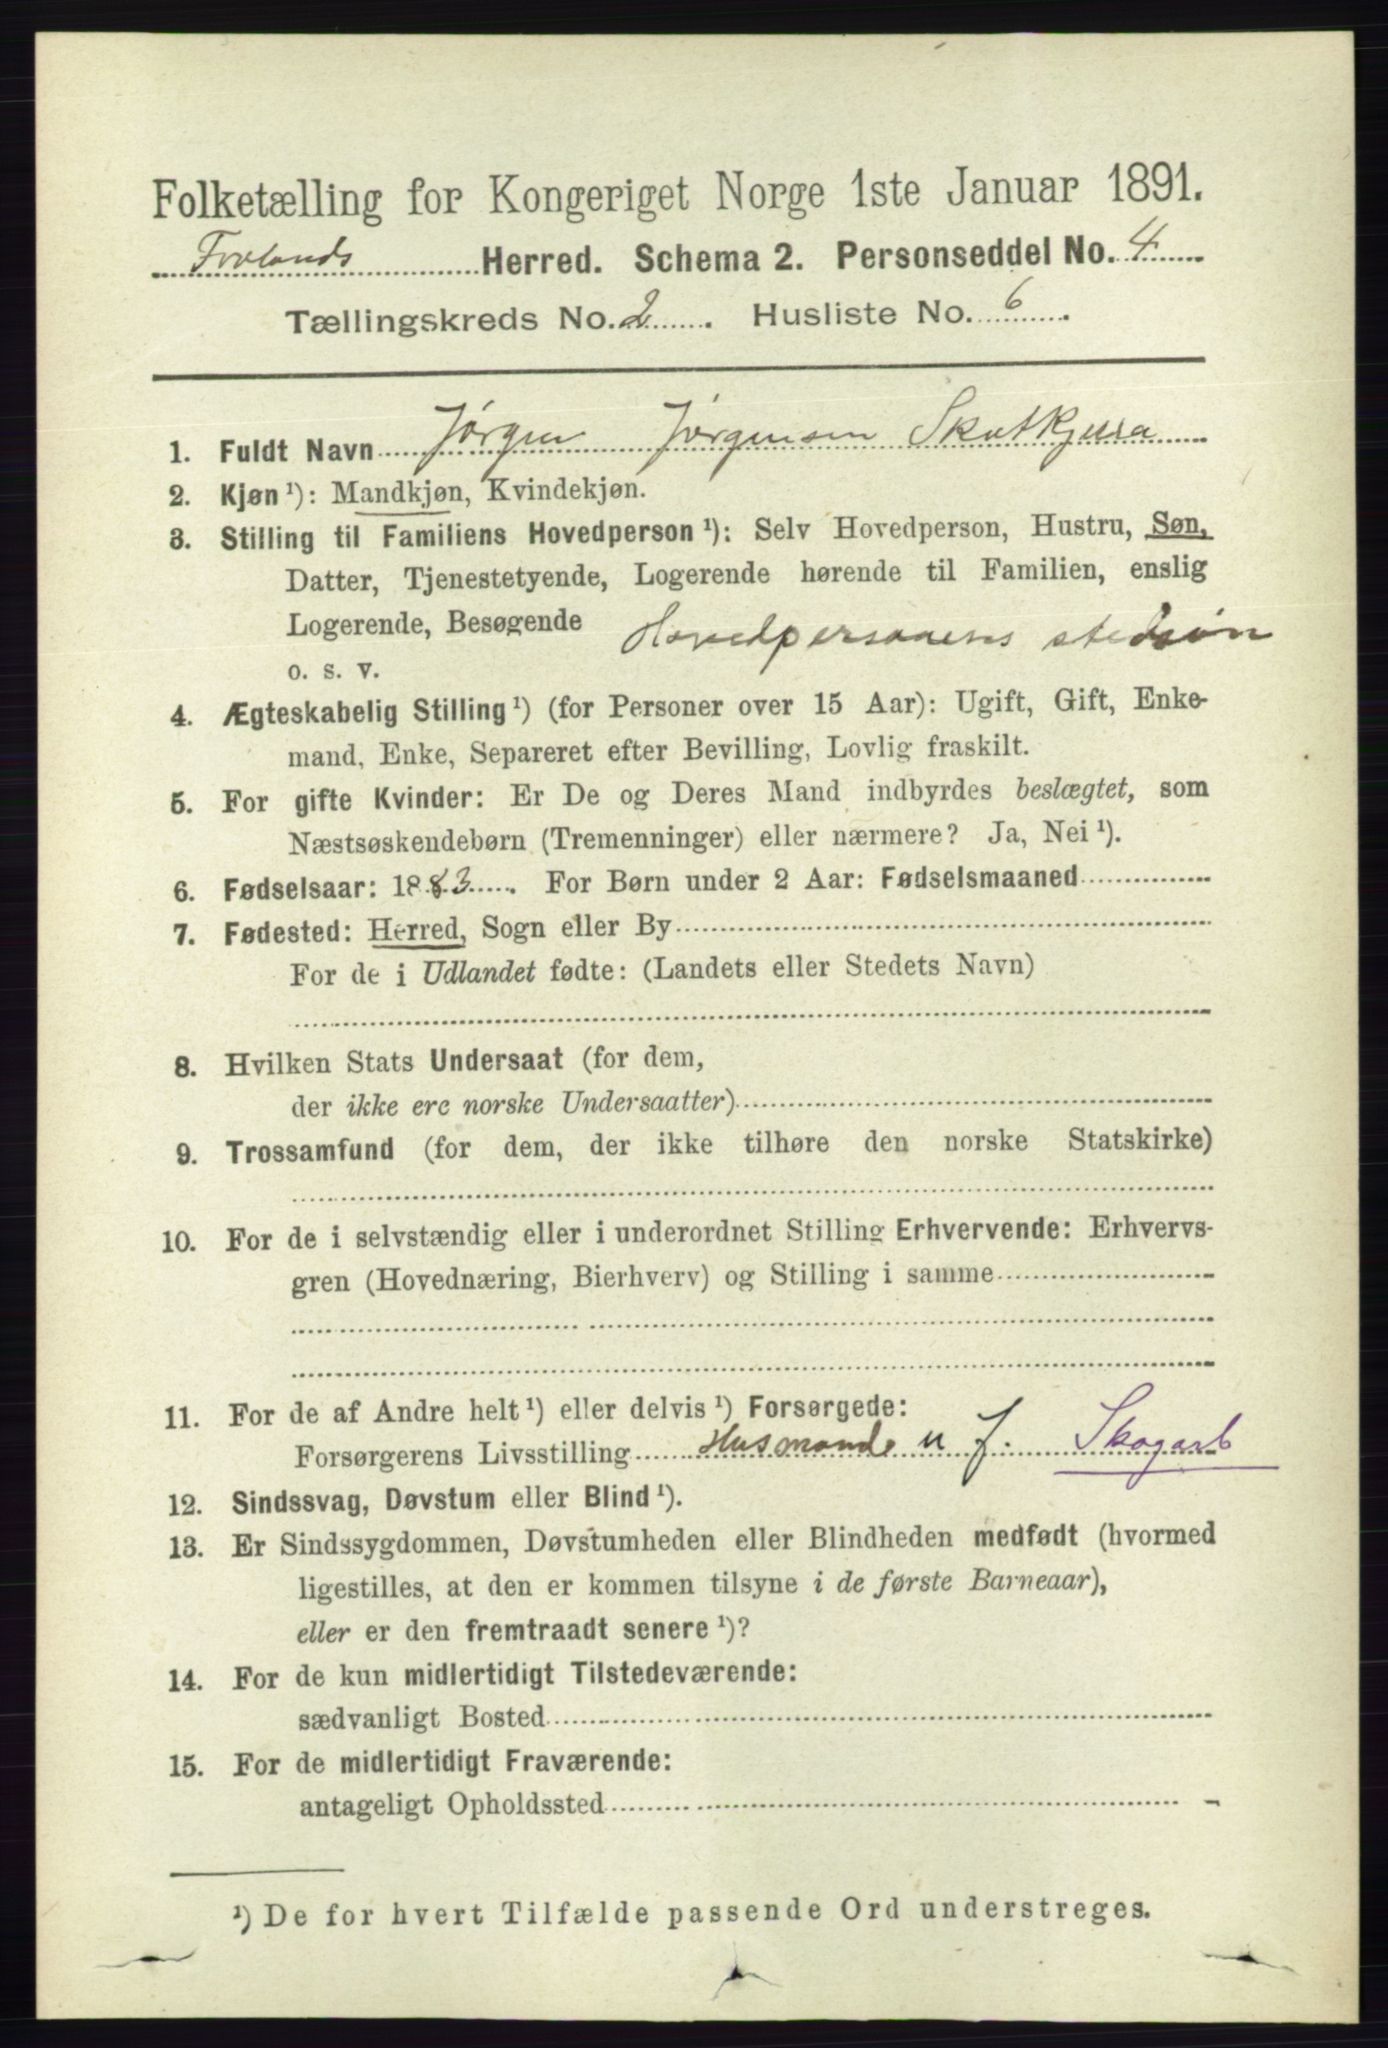 Folketælling for Kongeriget Norge 1ste Januar 1891.
Frolands Herred. Schema 2. Personseddel No. 4
Tællingskreds No. 2. Husliste No. 6.
1. Fuldt Navn Jørgen Jørgensen Skutkjerra
2. Kjøn¹): Mandkjøn, Kvindekjøn.
3. Stilling til Familiens Hovedperson¹): Selv Hovedperson, Hustru, Søn,
Datter, Tjenestetyende, Logerende hørende til Familien, enslig
Logerende, Besøgende Hovedpersonens stedsøn
o. s. v.
4. Ægteskabelig Stilling¹) (for Personer over 15 Aar): Ugift, Gift, Enke-
mand, Enke, Separeret efter Bevilling, Lovlig fraskilt.
5. For gifte Kvinder: Er De og Deres Mand indbyrdes beslægtet, som
Næstsøskendebørn (Tremenninger) eller nærmere? Ja, Nei¹).
6. Fødselsaar: 1883. For Børn under 2 Aar: Fødselsmaaned
7. Fødested: Herred, Sogn eller By
For de i Udlandet fødte: (Landets eller Stedets Navn)
8. Hvilken Stats Undersaat (for dem,
der ikke ere norske Undersaatter)
9. Trossamfund (for dem, der ikke tilhøre den norske Statskirke)
10. For de i selvstændig eller i underordnet Stilling Erhvervende: Erhvervs-
gren (Hovednæring, Bierhverv) og Stilling i samme
11. For de af Andre helt¹) eller delvis¹) Forsørgede:
Forsørgerens Livsstilling Husmand u J. Skogarb
12. Sindssvag, Døvstum eller Blind¹).
13. Er Sindssygdommen, Døvstumheden eller Blindheden medfødt (hvormed
ligestilles, at den er kommen tilsyne i de første Barneaar),
eller er den fremtraadt senere¹)?
14. For de kun midlertidigt Tilstedeværende:
sædvanligt Bosted
15. For de midlertidigt Fraværende:
antageligt Opholdssted
¹) De for hvert Tilfælde passende Ord understreges.